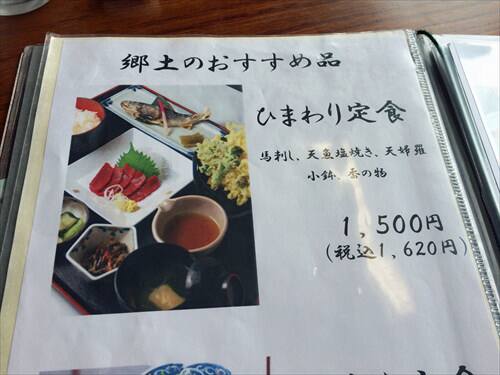 郷土のおすすめ品
ひまわり定食
馬刺し、天魚塩焼き、天婦羅
小鉢、香の物
1,500円
(税込1,620円)
定食